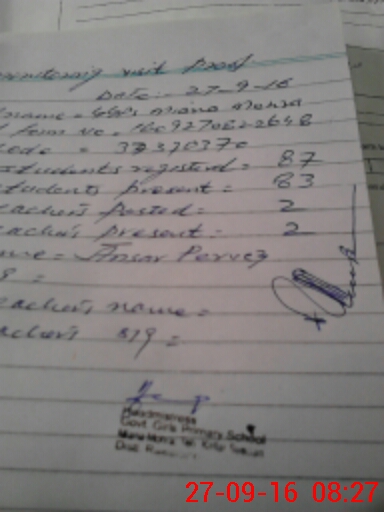 monitoring visit Proof
Date:- 27-9-16
name = GGPS Miana Mohra
form no.
code = 37320370
students registered = 87
students present = 83
eachers Posted = 2
eachers present = 2
me = Ansar Pervez
eachers name =
achers sig =
Headmistress
Govt. Girls Primary School
Miana Mohra Teh.
Dist.
27-09-16 08:27